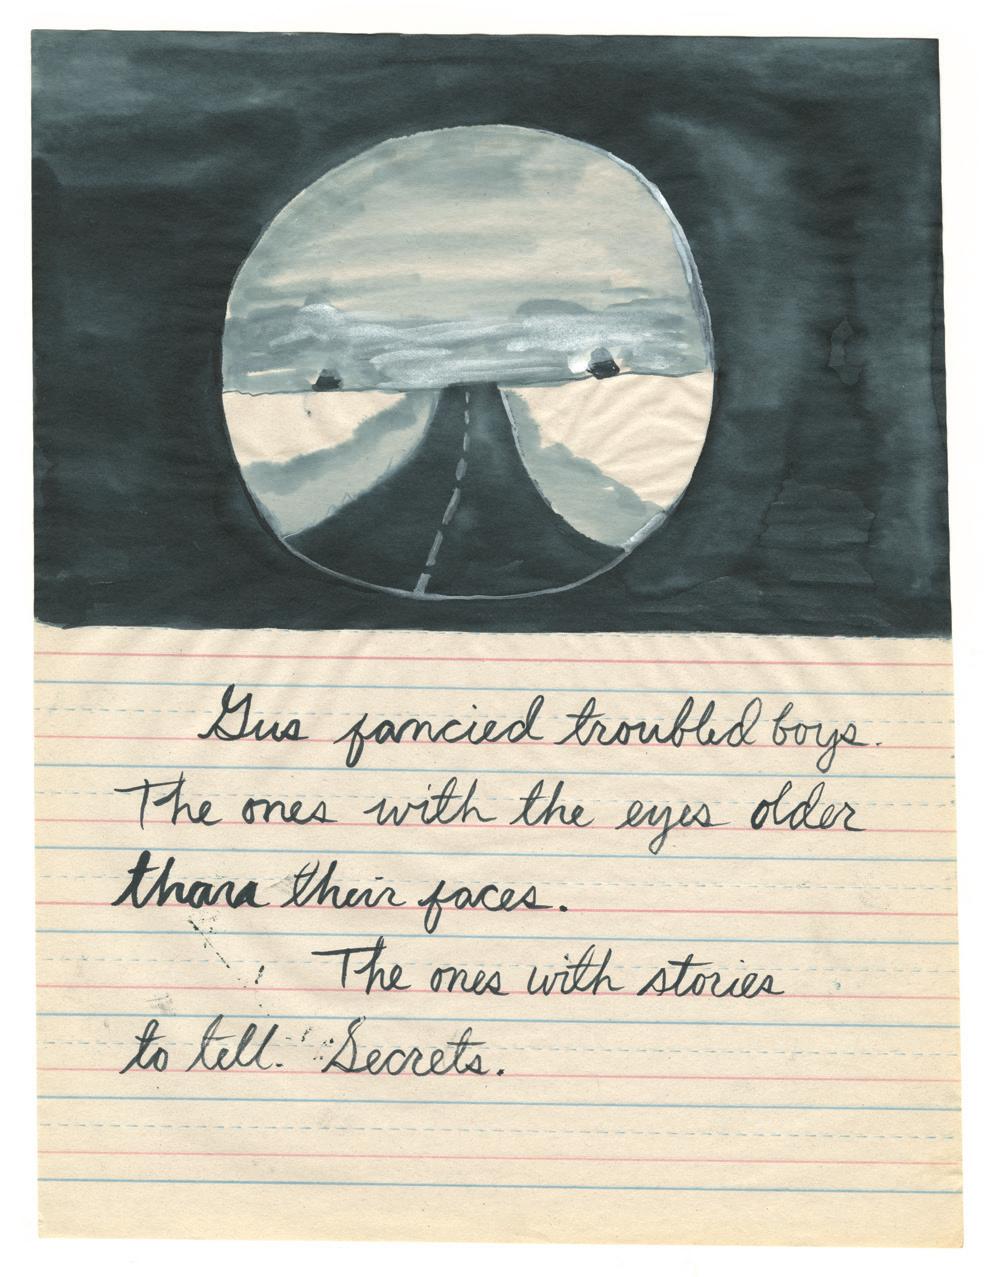 Gus fancied troubled boys.
The ones with the eyes older
than their faces.
The ones with stories
to tell. Secrets.